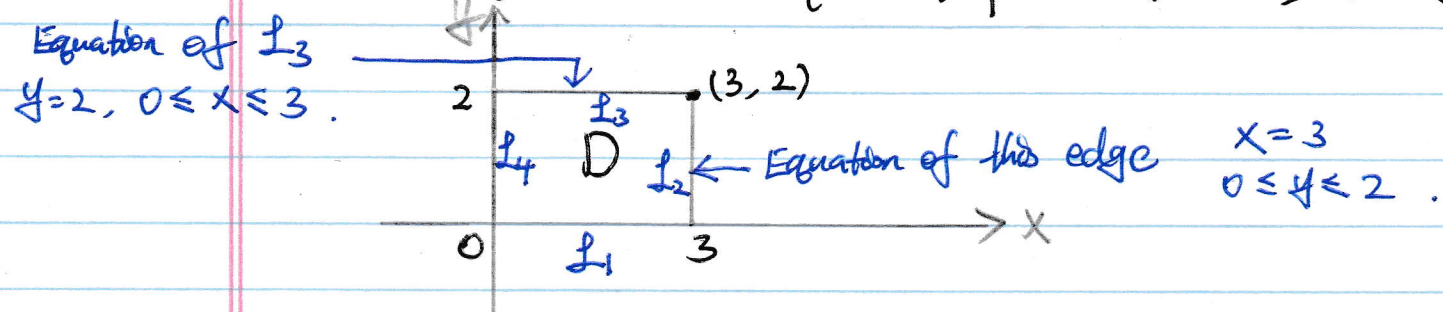 Equation of L₃
y=2, 0 ≤ x ≤ 3 .
y
2
(3, 2)
L₃
L₄
D
L₂
← Equation of this edge
x = 3
0 ≤ y ≤ 2 .
0
L₁
3
x